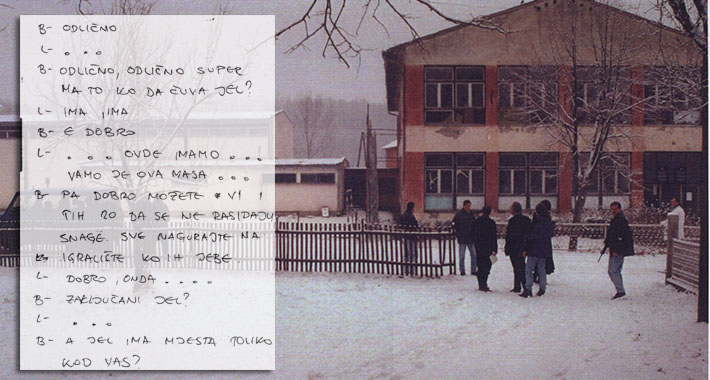 B- ODLIČNO
L- . . .
B- ODLIČNO, ODLIČNO SUPER
MA TO KO DA ČUVA JEL?
L- IMA, IMA
B- E DOBRO
L- . . . OVDE IMAMO . . .
VAMO JE OVA MASA . . .
B- PA DOBRO MOŽETE VI I
TIH 20 DA SE NE RASIPAJU
SNAGE. SVE NAGURAJTE NA
IGRALIŠTE KO IH JEBE.
L- DOBRO, ONDA . . . .
B- ZAKLJUČANI JEL?
L- . . .
B- A JEL IMA MJESTA TOLIKO
KOD VAS?